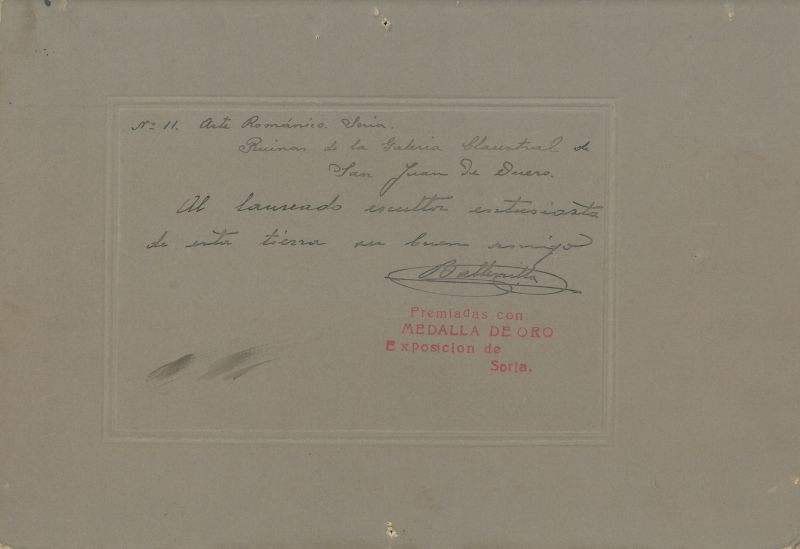 Nº 11. Arte Románico. Soria.
Ruinas de la Galeria Claustral de
San Juan de Duero.
Al laureado escultor entusiasta
de esta tierra su buen amigo
Ballenilla
Premiadas con
MEDALLA DE ORO
Exposicion de
Soria.